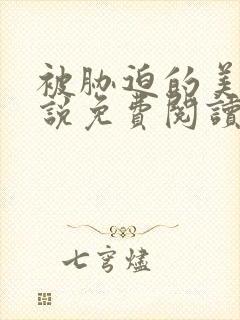 被胁迫的美
説免費閱讀
七穹燼